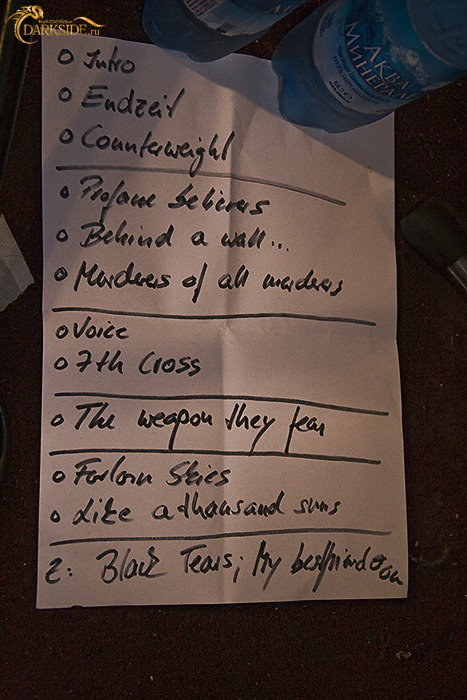 DARKSIDE.ru
АКВА
МИНЕРА
o Intro
o Endzeit
o Counterweight
o Profane believers
o Behind a wall...
o Murderers of all murderers
o Voice
o 7th Cross
o The weapon they fear
o Forlorn Skies
o Like a thousand suns
Z: Black Tears; My bestfriend